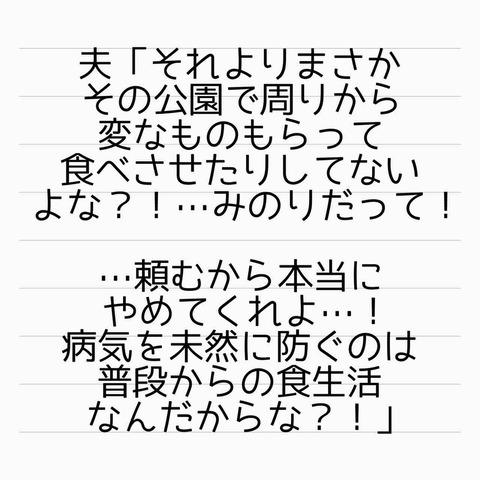 夫「それよりまさか
その公園で周りから
変なものもらって
食べさせたりしてない
よな？！…みのりだって！
…頼むから本当に
やめてくれよ…！
病気を未然に防ぐのは
普段からの食生活
なんだからな？！」